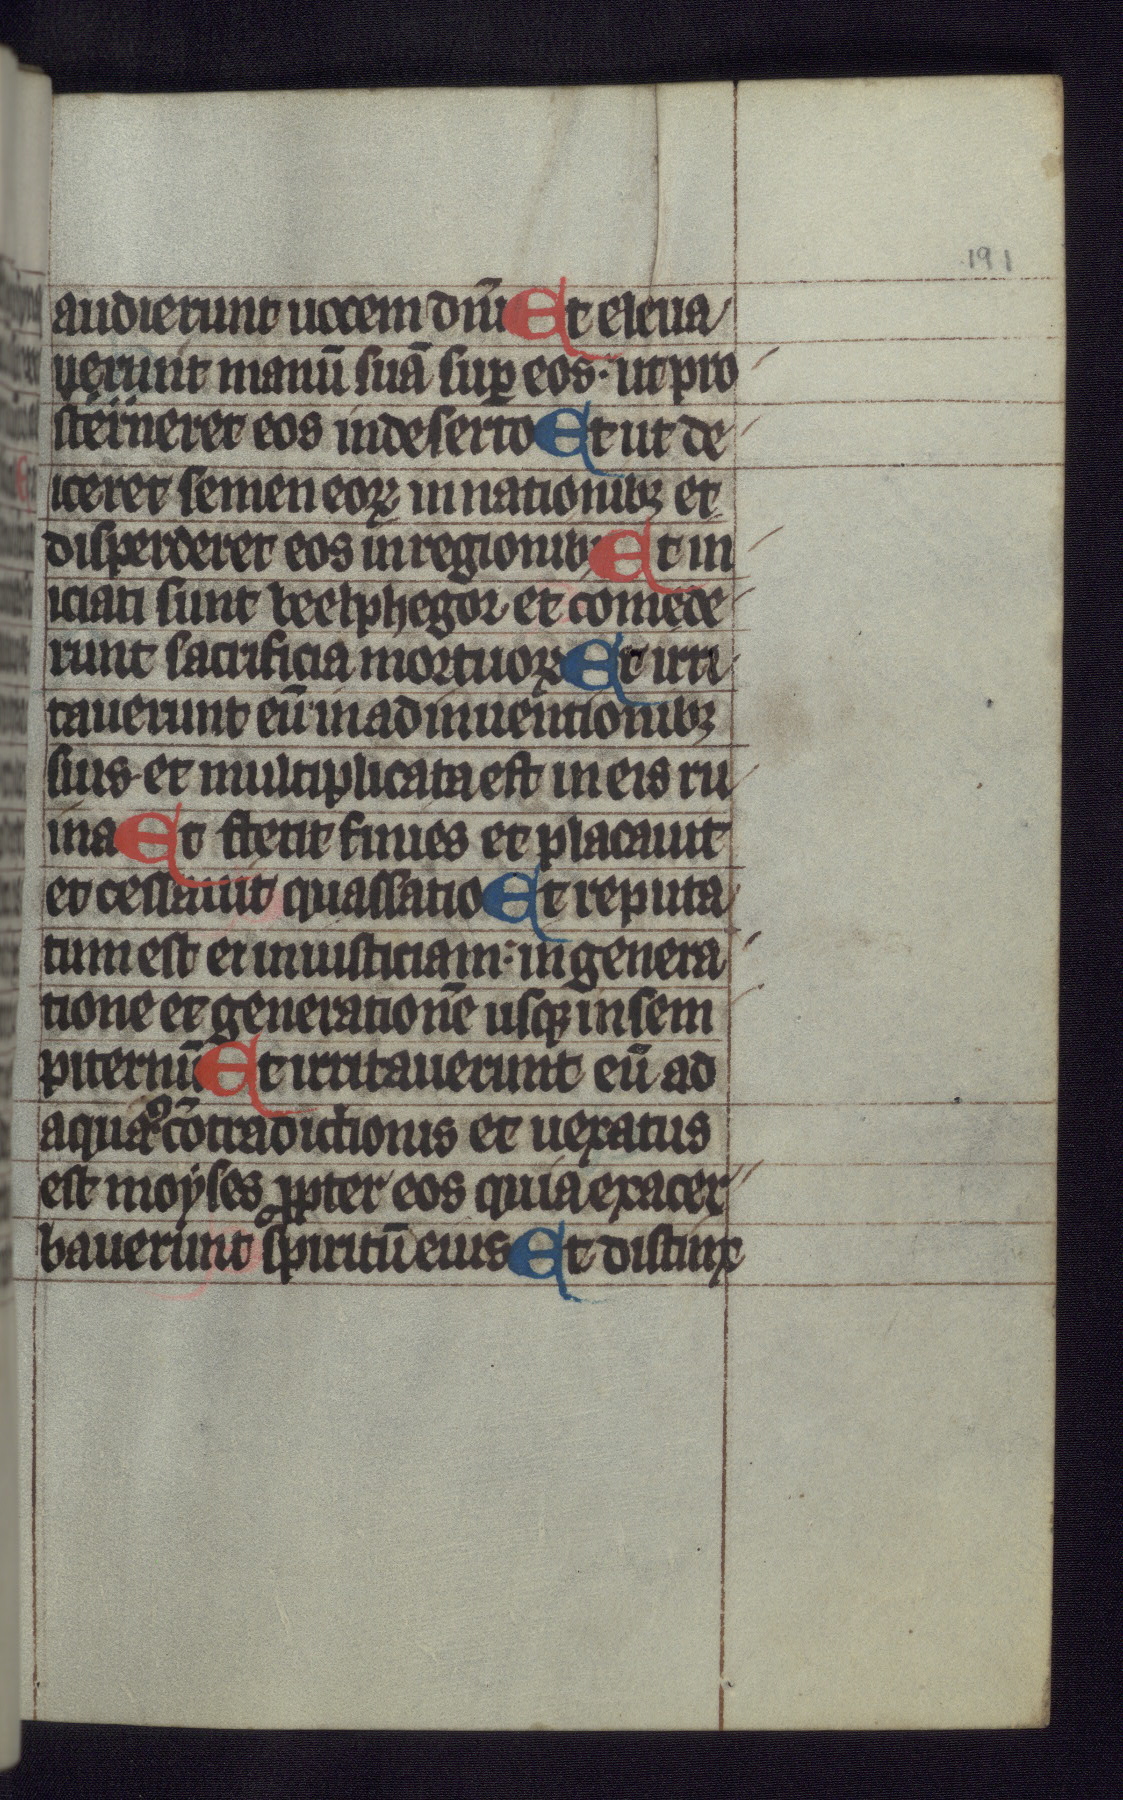 191
audierunt uocem dñi Et eleua
uerunt manū suā sup eos· ut pro
sterneret eos in deserto Et ut de
iceret semen eoꝝ in nationibꝫ et
disperderet eos in regionibꝫ Et in
iciati sunt beelphegor et comede
runt sacrificia mortuoꝝ Et irri
tauerunt eū in adinuentionibꝫ
suis· et multiplicata est in eis ru
ina Et stetit finies et placauit
et cessauit quassatio Et reputa
tum est ei in iusticiam· in genera
tione et generationē usqꝫ in sem
piternū Et irritauerunt eū ad
aquas cōtradictionis et uexatus
est moyses ꝓpter eos quia exacer
bauerunt spiritū eius Et distinx